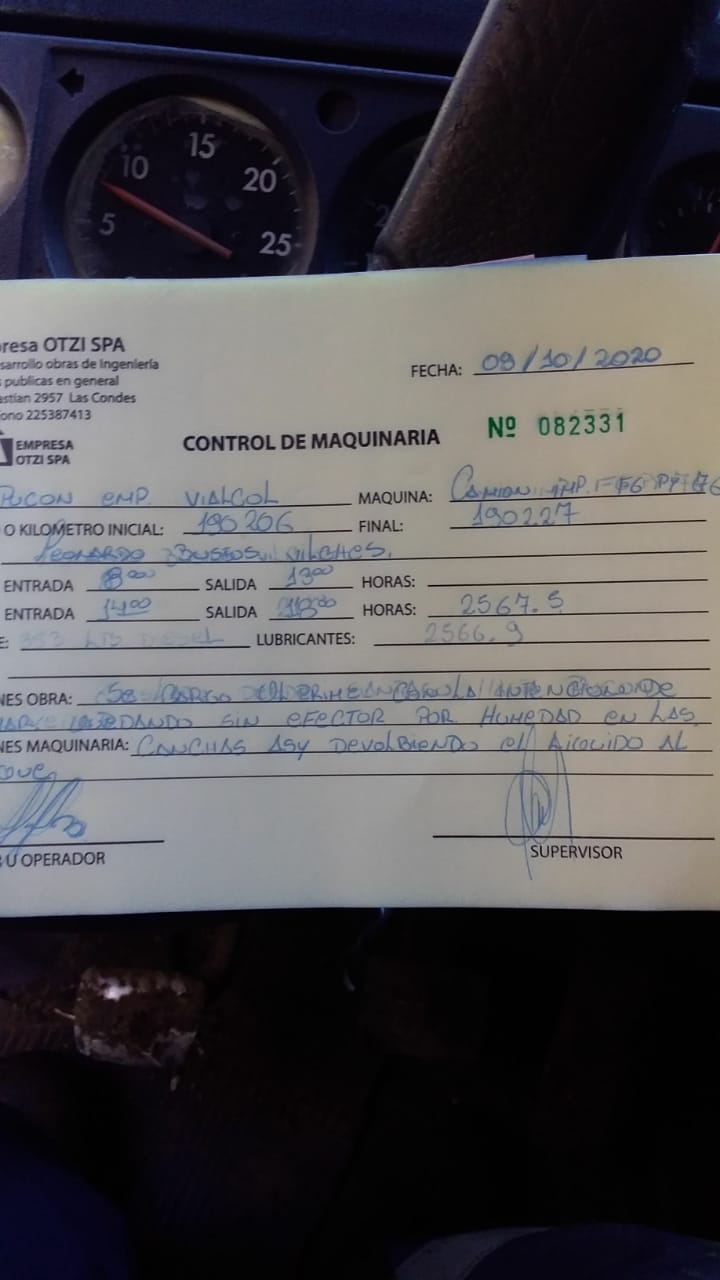 10 15 20 25 5
resa OTZI SPA
sarrollo obras de Ingeniería
s publicas en general
astían 2957 Las Condes
ono 225387413
FECHA: 09/10/2020
EMPRESA
OTZI SPA
CONTROL DE MAQUINARIA
Nº 082331
Pucon emp. VIALCOL MAQUINA: Camion
O KILOMETRO INICIAL: 190206 FINAL: 190227
Leonardo Bustos Vilches.
ENTRADA 8:00 SALIDA 13:00 HORAS:
ENTRADA 14:00 SALIDA HORAS: 2567.5
E: 353 Lts Diesel LUBRICANTES: 2566.9
NES OBRA: Se cargo
quedando sin efecto por Humedad en Las
NES MAQUINARIA: Canchas asy Devolbiendo el AL
U OPERADOR
SUPERVISOR